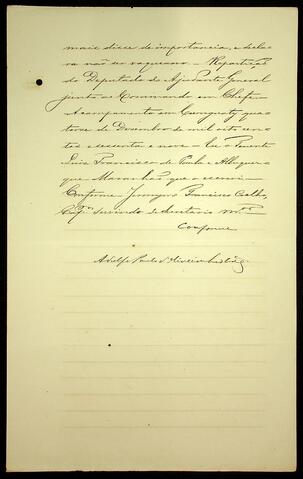 mais disse de importancia, e decla
ra não ser vaqueano - Repartição
do Deputado do Ajudante General
junto ao Commando em Chefe -
Acampamento em Curuguaty qua
torze de Dezembro de mil oito cen
tos e sessenta e nove - Eu o Tenente
Luis Francisco de Paula e Albuquer
que Maranhão que o escrevi -
Conforme - Francisco Coelho,
Cap.m servindo de
Conforme
Adolfo